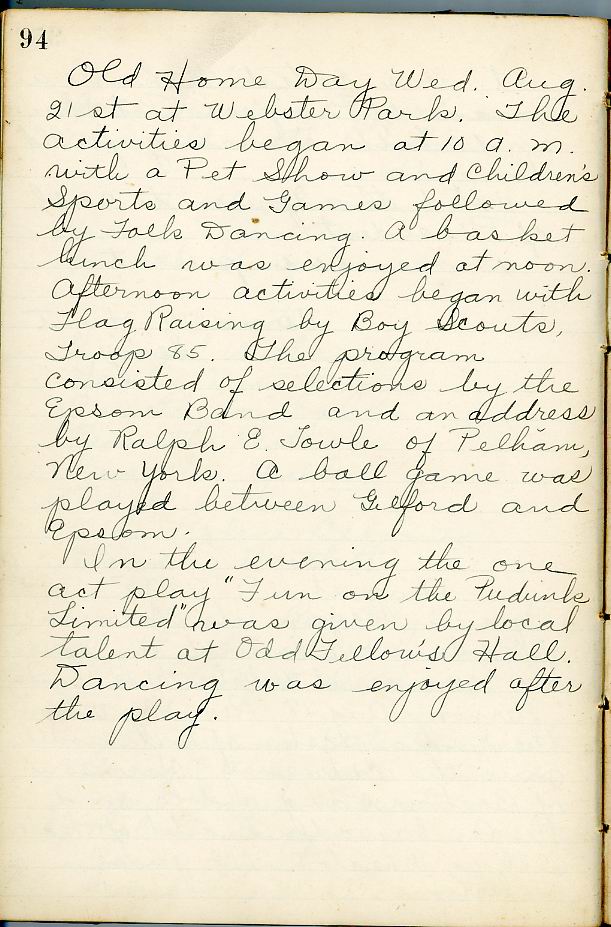 94
Old Home Day Wed. Aug.
21st at Webster Park. The
activities began at 10 a. m.
with a Pet Show and Children's
Sports and Games followed
by Folk Dancing. A basket
lunch was enjoyed at noon.
Afternoon activities began with
Flag Raising by Boy Scouts,
Troop 85. The program
consisted of selections by the
Epsom Band and an address
by Ralph E. Towle of Pelham,
New York. A ball game was
played between Gilford and
Epsom.
In the evening the one
act play "Fun on the Podunk
Limited" was given by local
talent at Odd Fellow's Hall.
Dancing was enjoyed after
the play.